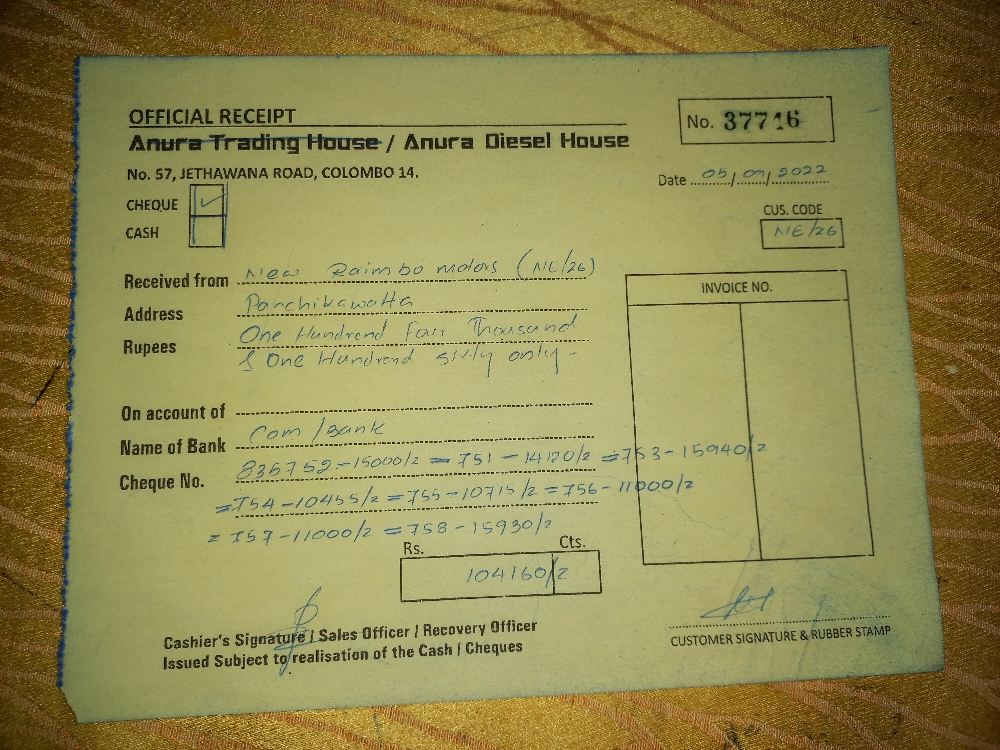 OFFICIAL RECEIPT
No. 37716
Anura Trading House / Anura Diesel House
No. 57, JETHAWANA ROAD, COLOMBO 14.
Date 05/09/2022
CHEQUE ✓
CASH
CUS. CODE
NE/26
Received from New Raimbo motors (NE/26)
Address Panchikawatta
Rupees One Hundrend Four Thousand
& One Hundrend sixty only -
INVOICE NO.
On account of
Name of Bank Com/Bank
Cheque No. 836752-15000/2 = 751-14120/2 = 753-15940/2
= 754-10455/2 = 755-10715/2 = 756-11000/2
= 757-11000/2 = 758-15930/2
Rs. Cts.
104160/2
Cashier's Signature / Sales Officer / Recovery Officer
Issued Subject to realisation of the Cash / Cheques
CUSTOMER SIGNATURE & RUBBER STAMP